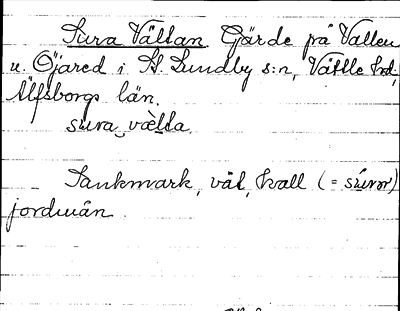 Sura Vältan. Gärde på Vallen
u. Öjared i St. Lundby s:n, Vättle hd,
Älfsborgs län.
sura vælta.
Sankmark, våt, kall (= survr)
jordmån.